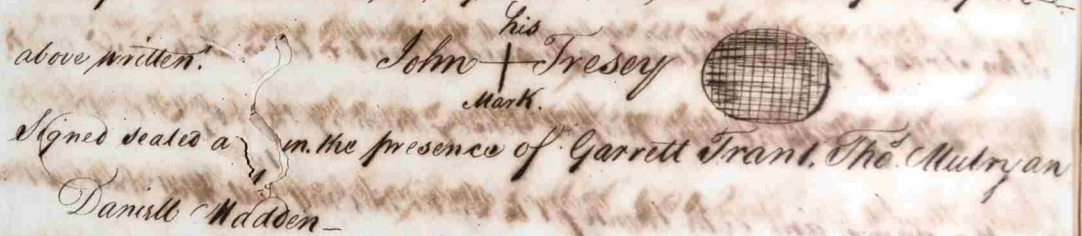 his
above written. John + Tresey
Mark.
Signed sealed a in the presence of Garrett Trant. Thos. Mulryan
Daniell Madden